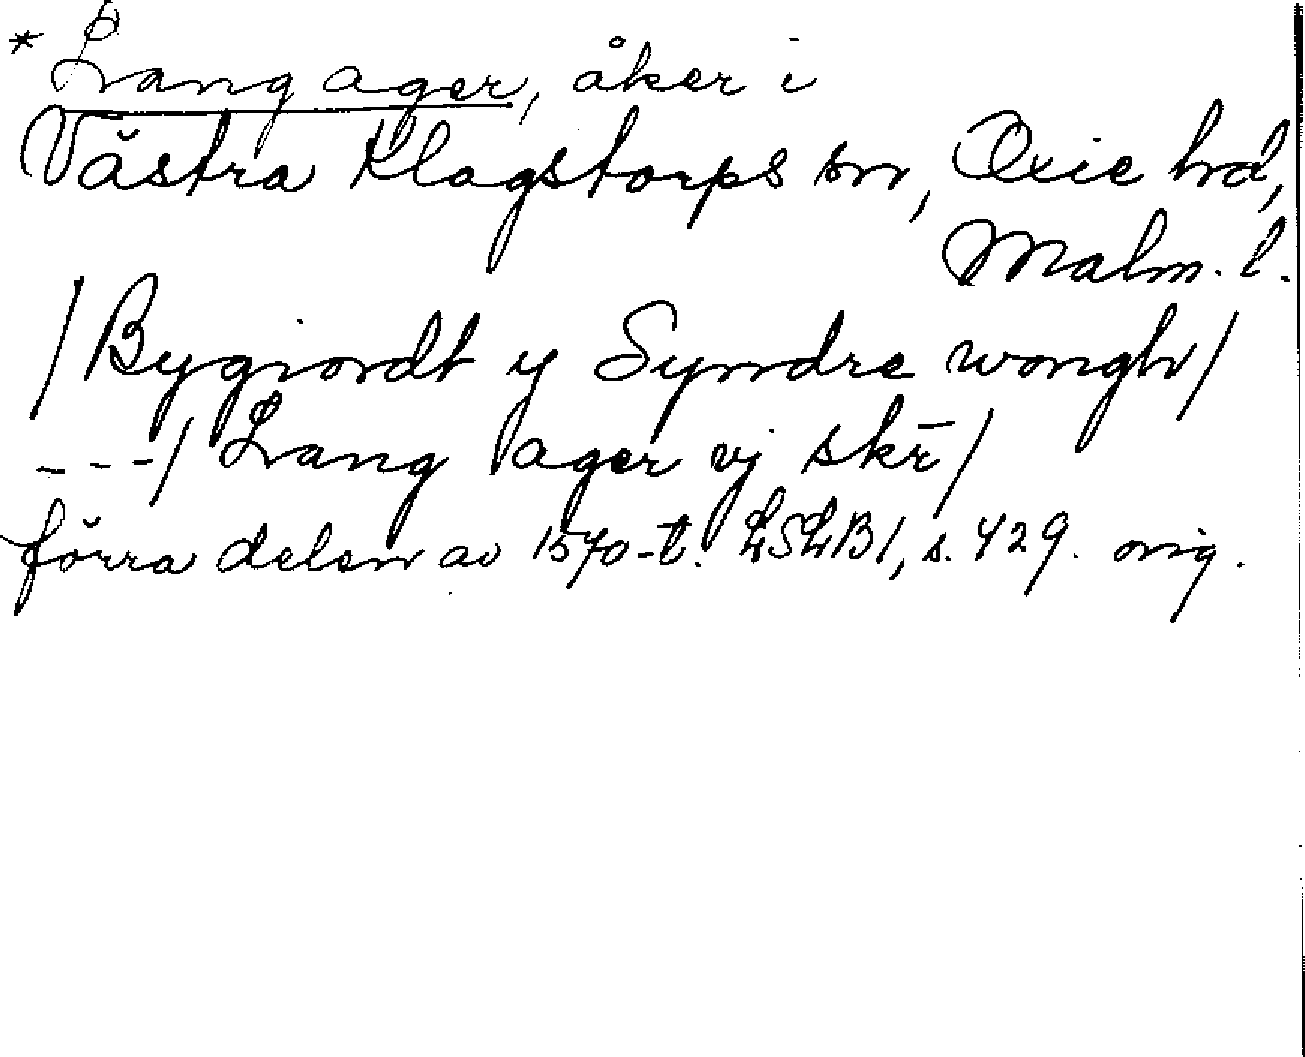 * Lang ager, åker i
Västra Klagstorps sn, Oxie hd,
Malm. l.
/Bygiordt y Syndre wongh/
---/ Lang ager vj skr̄/
förra delen av 1570-t. LSLB1, s. 429. orig.